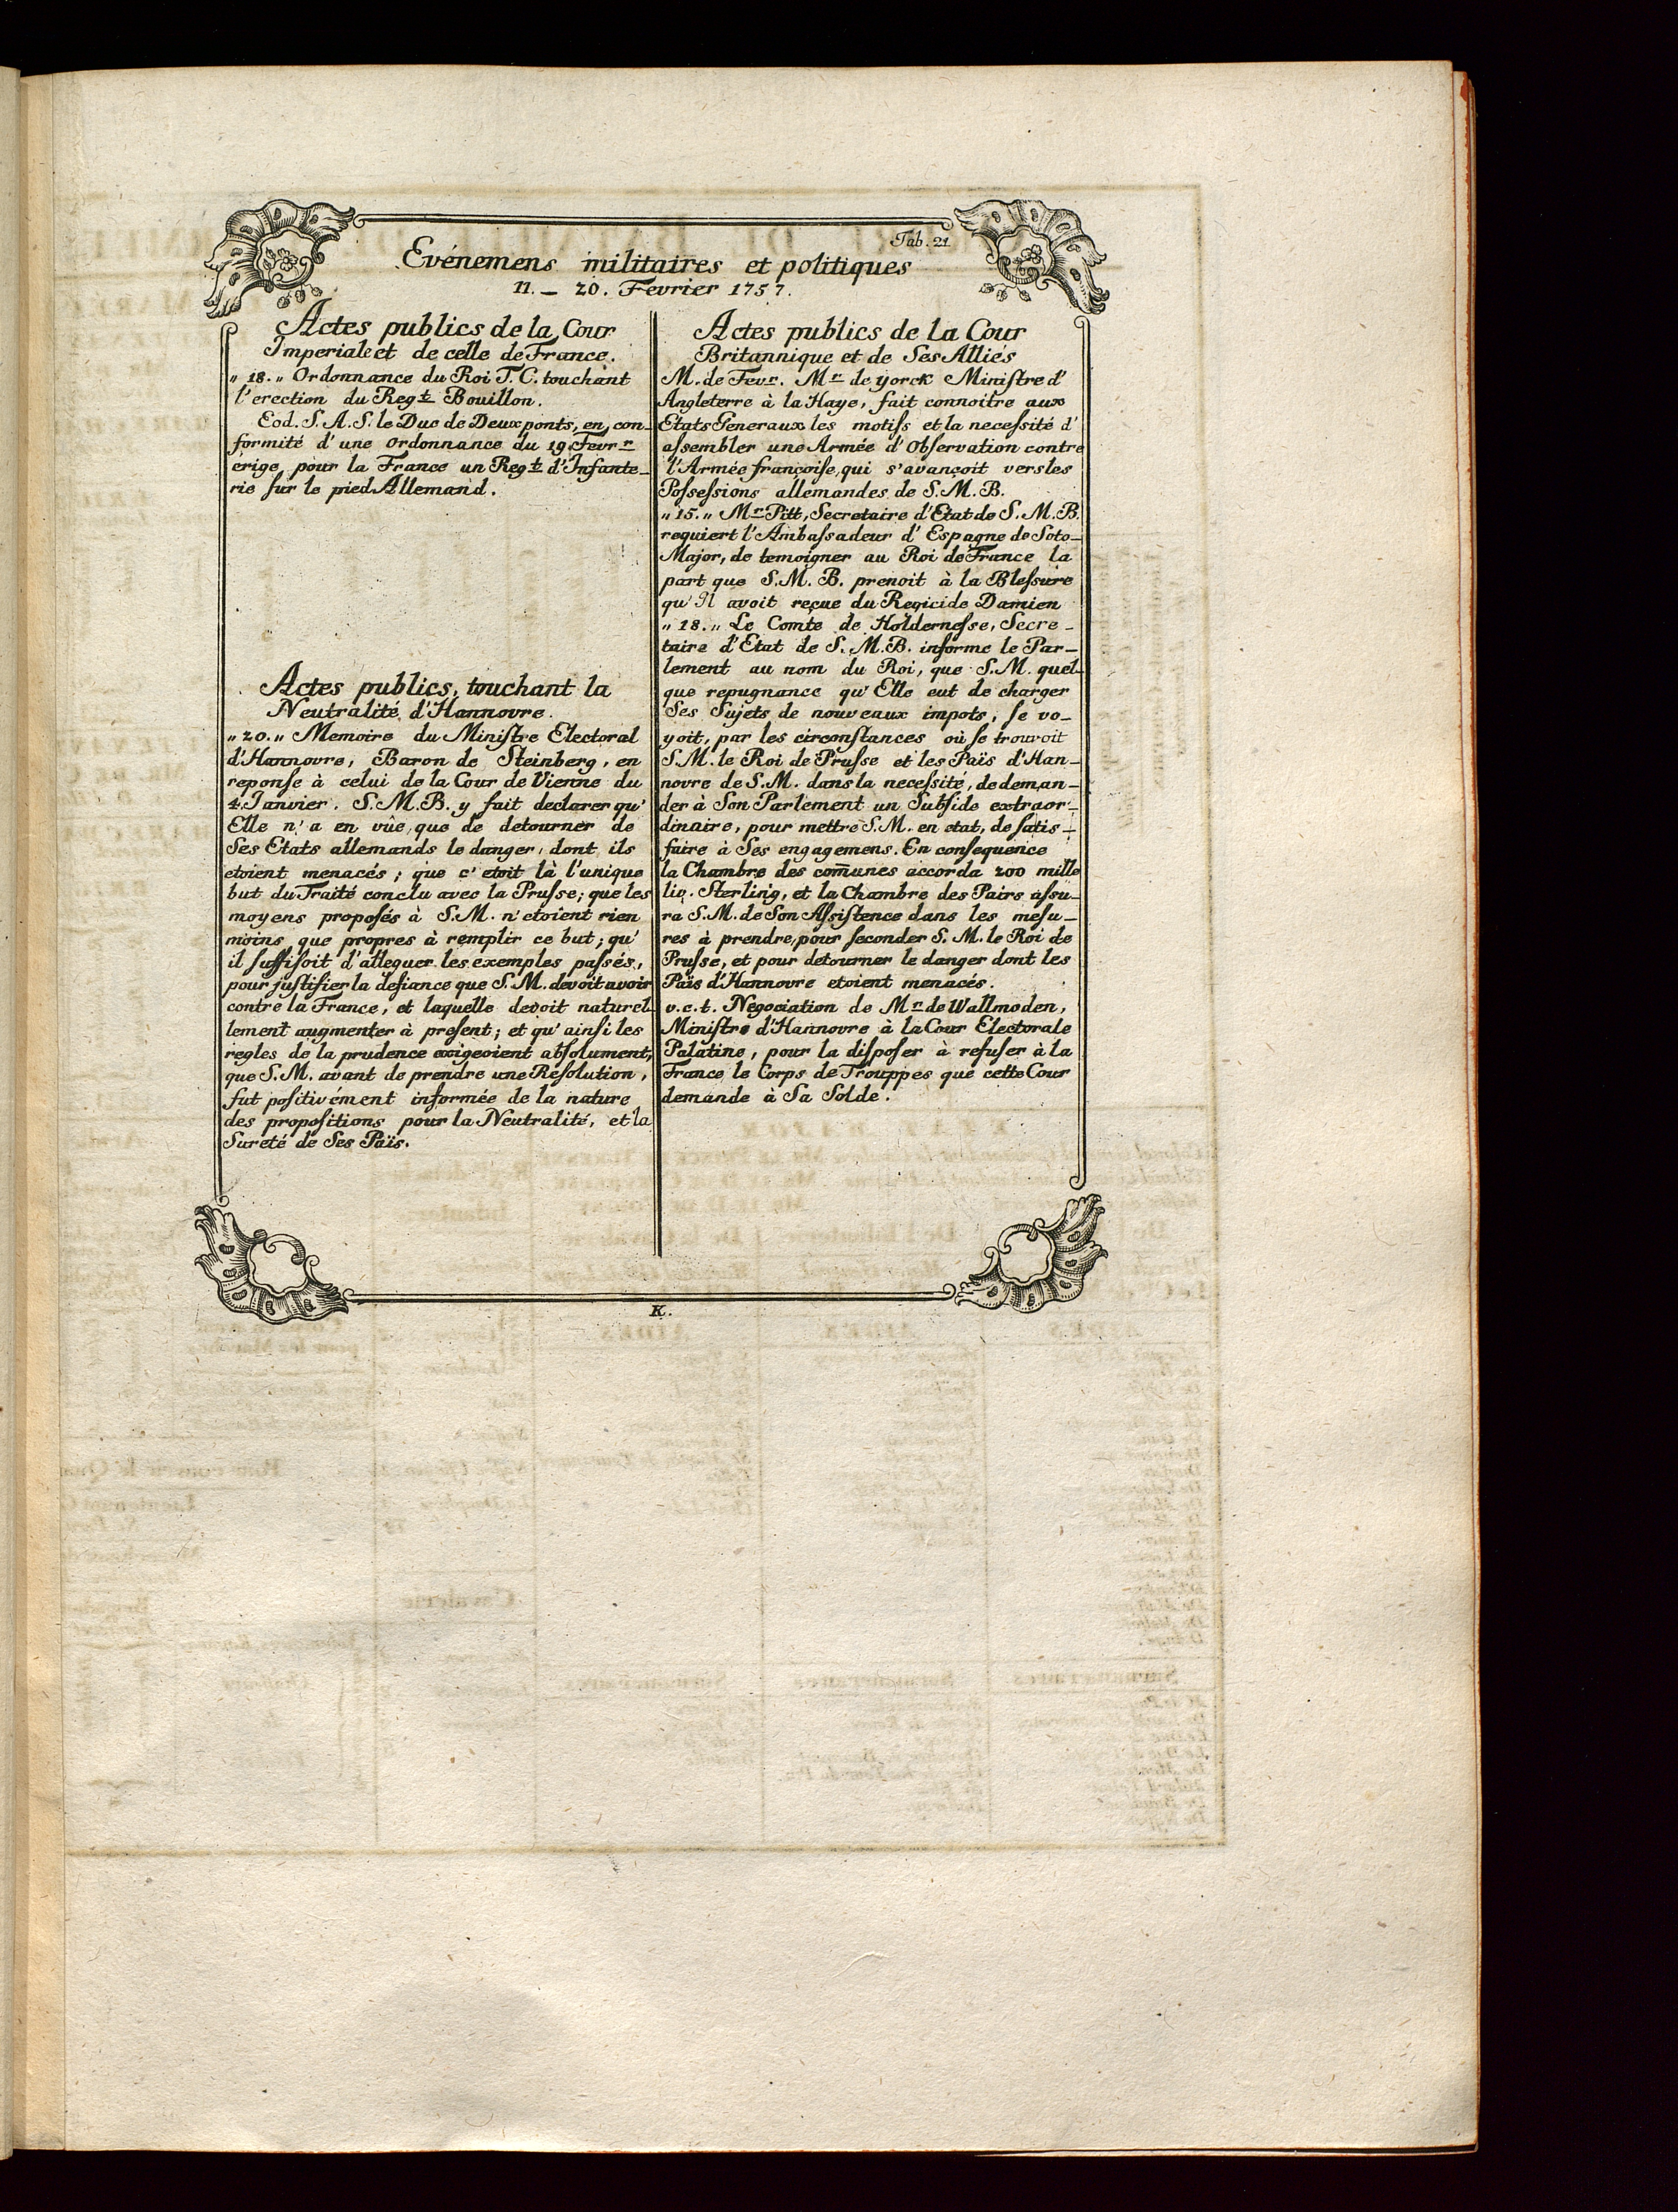 Tab. 21.
Evénemens militaires et politiques
11. – 20. Fevrier 1757.
Actes publics de la Cour
Imperiale et de celle de France.
„ 18. „ Ordonnance du Roi T. C. touchant
l'erection du Regt. Bouillon.
Eod. S. A. S. le Duc de Deuxponts, en con-
formité d'une ordonnance du 19 Fevrr
érige pour la France un Regt. d'Infante-
rie sur le pied Allemand.
Actes publics, touchant la
Neutralité d'Hannovre.
„ 20. „ Memoire du Ministre Electoral
d'Hannovre, Baron de Steinberg, en
reponse à celui de la Cour de Vienne du
4. Janvier. S. M. B. y fait declarer qu'
Elle n'a en vûe, que de detourner de
Ses Etats allemands le danger, dont ils
etoient menacés; que c'etoit là l'unique
but du Traité conclu avec la Prusse; que les
moyens proposés à S. M. n'etoient rien
moins que propres à remplir ce but; qu'
il suffisoit d'alleguer les exemples passés,
pour justifier la defiance que S. M. devoit avoir
contre la France, et laquelle devoit naturel-
lement augmenter à present; et qu'ainsi les
regles de la prudence exigeoient absolument,
que S. M. avant de prendre une Résolution,
fut positivément informée de la nature
des propositions pour la Neutralité, et la
Sureté de Ses Païs.
Actes publics de la Cour
Britannique et de Ses Alliés
M. de Fevr. Mr de yorck Ministre d'
Angleterre à la Haye, fait connoitre aux
Etats Generaux les motifs et la necessité d'
assembler une Armée d'Observation contre
l'Armée françoise, qui s'avançoit vers les
Possessions allemandes de S. M. B.
„ 15. „ Mr Pitt, Secretaire d'Etat de S. M. B.
requiert l'Ambassadeur d'Espagne de Soto-
Major, de temoigner au Roi de France la
part que S. M. B. prenoit à la Blessure
qu'Il avoit reçue du Regicide Damien
„ 18. „ Le Comte de Holdernesse, Secre-
taire d'Etat de S. M. B. informe le Par-
lement au nom du Roi, que S. M. quel-
que repugnance qu'Elle eut de charger
Ses Sujets de nouveaux impots, se vo-
yoit, par les circonstances où se trouvoit
S. M. le Roi de Prusse et les Païs d'Han-
novre de S. M. dans la necessité, de deman-
der à Son Parlement un Subside extraor-
dinaire, pour mettre S. M. en etat, de satis-
faire à Ses engagemens. En consequence
la Chambre des com̄unes accorda 200 mille
liv. Sterling, et la Chambre des Pairs assu-
ra S. M. de Son Assistence dans les mesu-
res à prendre, pour seconder S. M. le Roi de
Prusse, et pour detourner le danger dont les
Païs d'Hannovre etoient menacés.
v. c. t. Négociation de Mr de Wallmoden,
Ministre d'Hannovre à la Cour Electorale
Palatine, pour la disposer à refuser à la
France le Corps de Trouppes que cette Cour
demande à Sa Solde.
K.